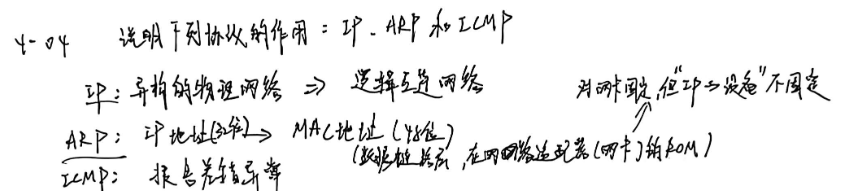 4-04 说明下列协议的作用：IP、ARP和ICMP
IP：异构的物理网络 => 逻辑互连网络
对网卡固定，但"IP→设备"不固定
ARP：IP地址(32位) → MAC地址(48位)
(数据链路层，在网络适配器(网卡)的ROM)
ICMP：报告差错异常